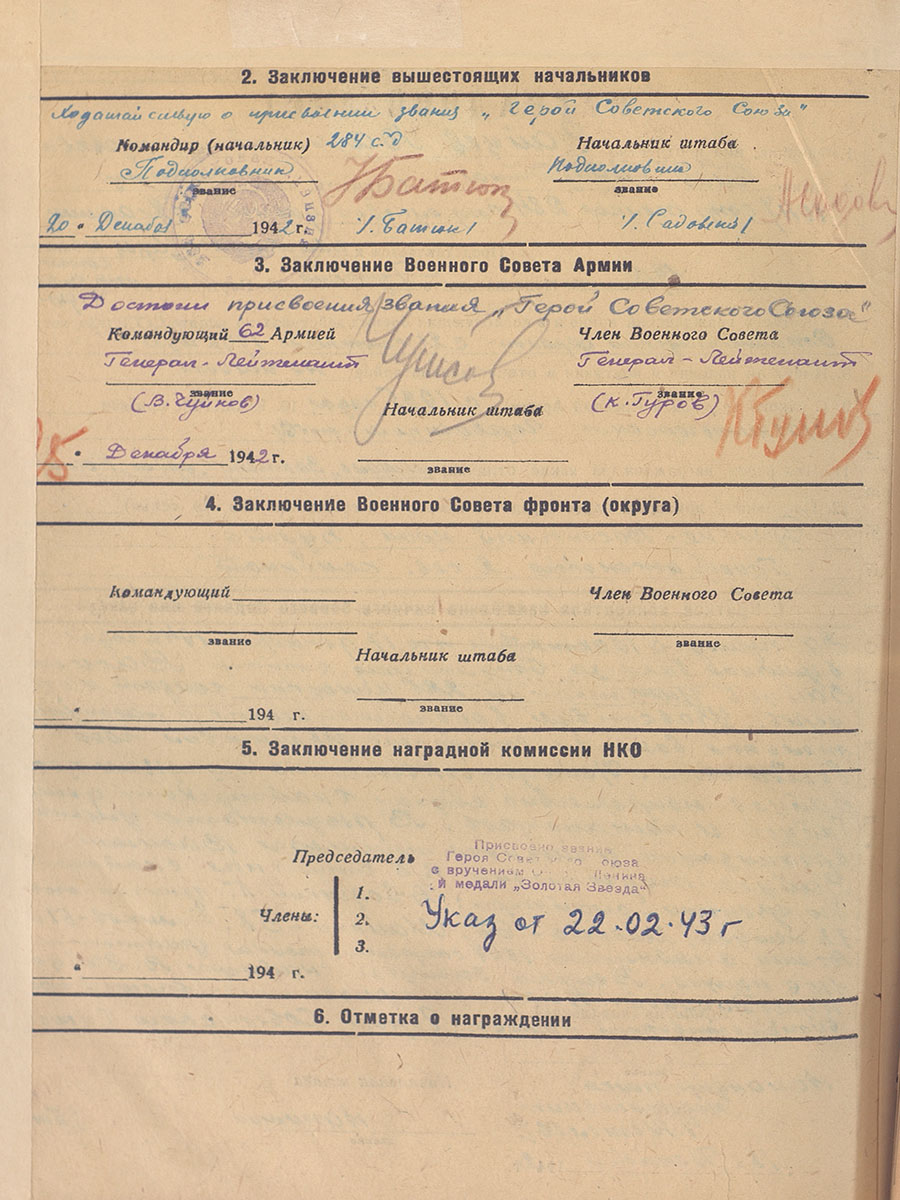 2. Заключение вышестоящих начальников
Ходатайствую о присвоении звания „Герой Советского Союза"
Командир (начальник) 284 с.д Начальник штаба
Подполковник Подполковник
звание звание
20 " Декабря 1942 г. /. Батюк / /. Садовский /
НБатюк
3. Заключение Военного Совета Армии
Достоин присвоения звания „Герой Советского Союза"
Командующий 62 Армией Член Военного Совета
Генерал-Лейтенант Генерал-Лейтенант
звание звание
(В. Чуйков) Начальник штаба (К. Гуров)
КГуров
" Декабря 1942 г.
звание
4. Заключение Военного Совета фронта (округа)
Командующий Член Военного Совета
звание звание
Начальник штаба
" 194 г. звание
5. Заключение наградной комиссии НКО
Председатель
Присвоено звание
Героя Советского Союза
с вручением Ленина
и медали „Золотая Звезда"
Члены: 1.
2. Указ от 22.02.43 г
3.
" 194 г.
6. Отметка о награждении